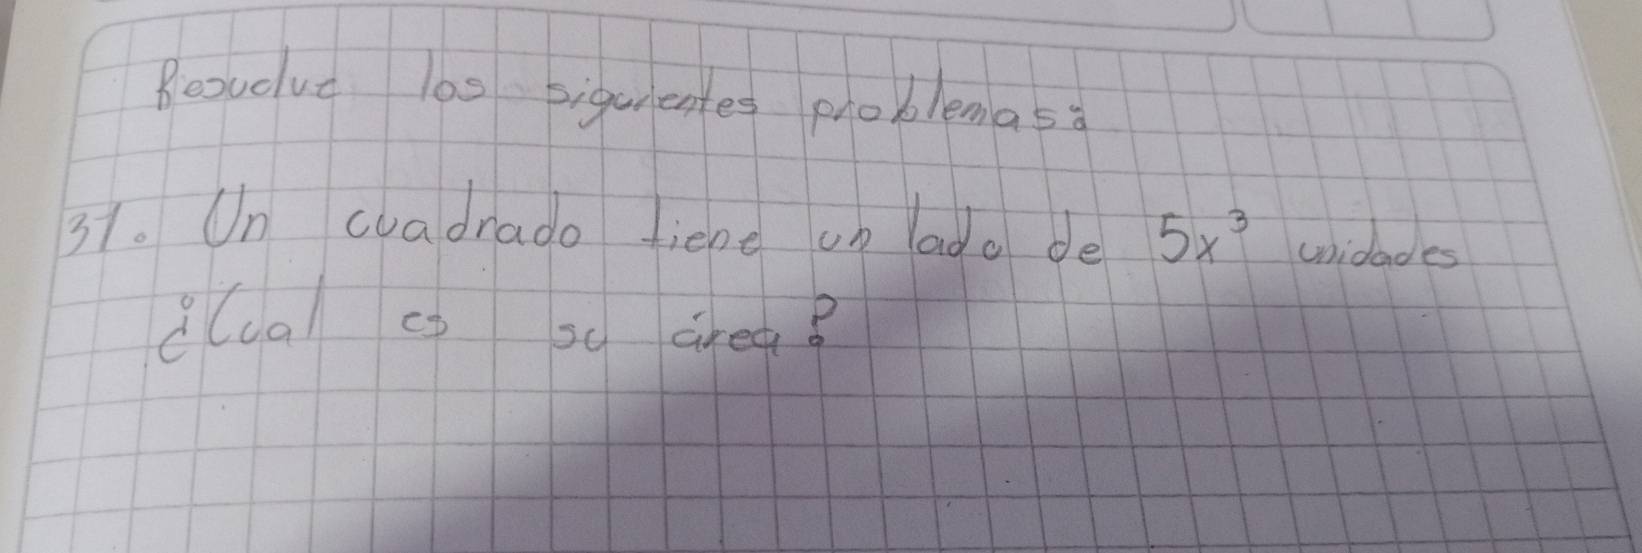 Resuelve los siguientes problemas:
31. Un cuadrado tiene un lado de 5x³ unidades
¿Cual es su área?